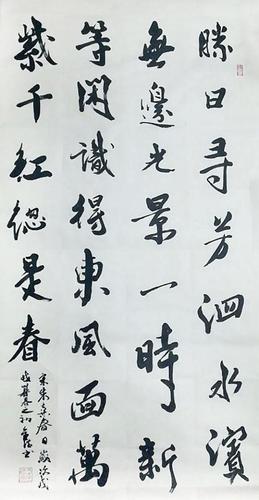 勝日尋芳泗水濱
無邊光景一時新
等閑識得東風面萬
紫千紅總是春
宋朱熹春日歲次戊
暮春之初書